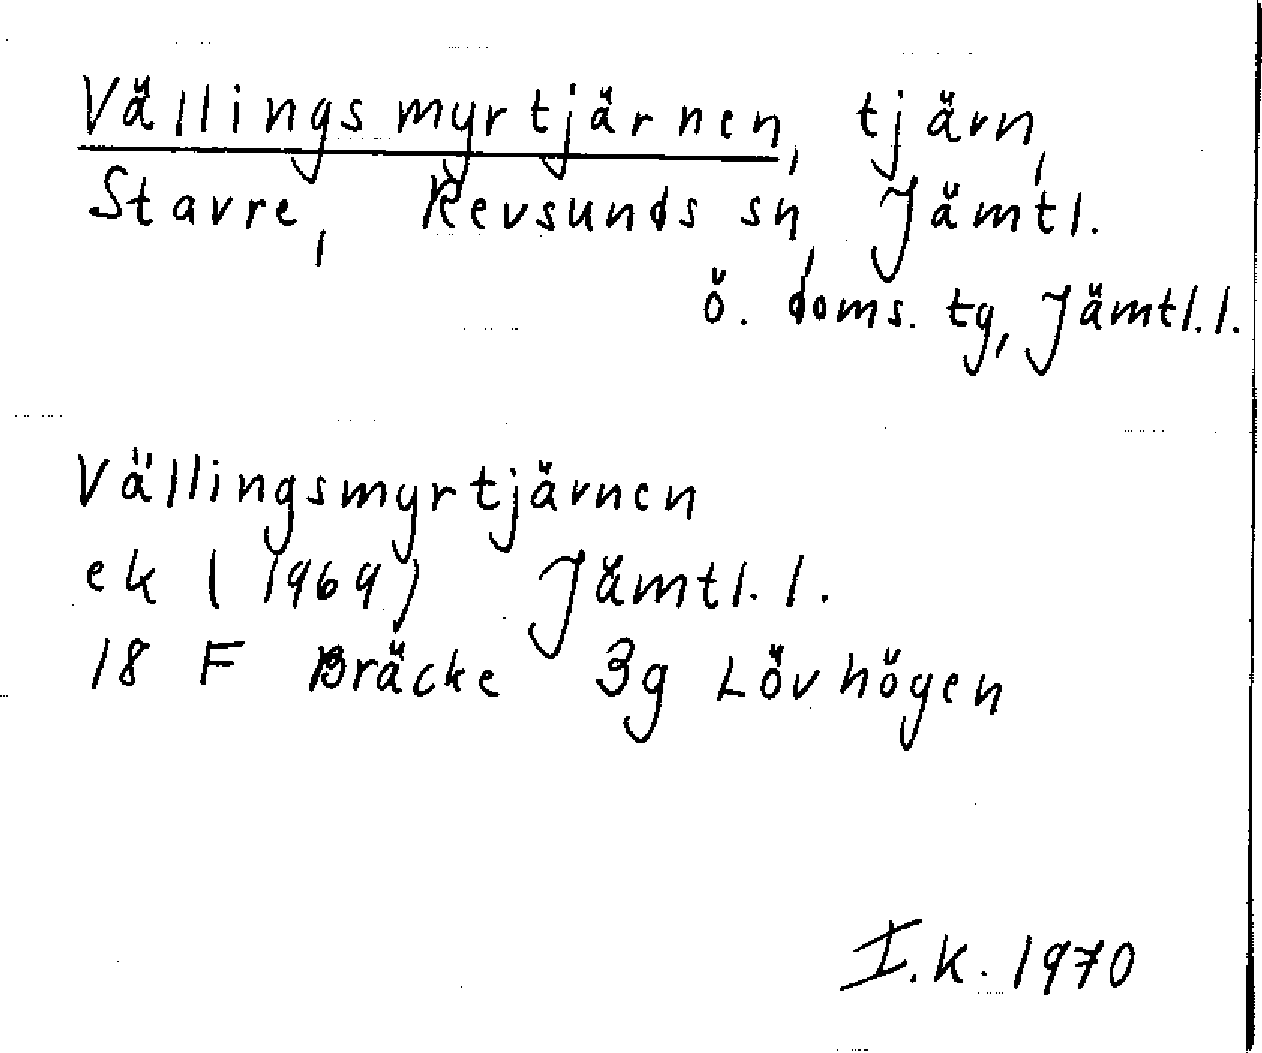 Vällingsmyrtjärnen, tjärn,
Stavre, Revsunds sn, Jämtl.
ö. doms. tg, Jämtl. l.
Vällingsmyrtjärnen
ek (1969) Jämtl. l.
18 F Bräcke 3g Lövhögen
I.K. 1970